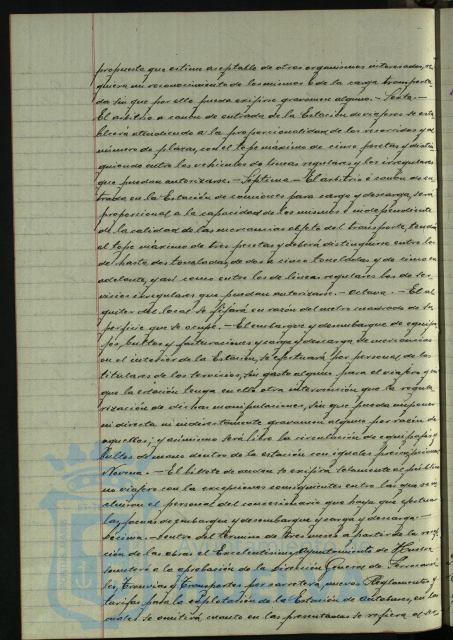 propuesta que estime aceptable de otros organismos interesados, re-
quiera un reconocimiento de los mismos o de la carga transporta-
da sin que por ello pueda exigirse gravamen alguno.- Sexta.-
El arbitrio o canon de entrada de la Estación de viajeros se esta-
blecerá atendiendo a la proporcionalidad de los recorridos y al
número de plazas, con el tope máximo de cinco pesetas y distin-
guiendo entre los vehículos de líneas regulares y los irregulares
que puedan autorizarse.- Septima.- El arbitrio o canon de en-
trada en la Estación de camiones para carga y descarga, será
proporcional a la capacidad de los mismos e independiente
de la calidad de las mercancías objeto del transporte, tendrá
el tope máximo de tres pesetas y deberá distinguirse entre los
de hasta dos toneladas, de dos a cinco toneladas y de cinco en
adelante, y así como entre los de líneas regulares los de ser-
vicios irregulares que puedan autorizarse.- Octava.- El al-
quiler del local se fijará en razón del metro cuadrado de su-
perficie que se ocupe.- El embarque y desembarque de equipa-
jes, bultos y facturaciones y carga y descarga de mercancías
en el interior de la Estación, se efectuará por personal de los
titulares de los servicios, sin gasto alguno para el viajero y sin
que la estación tenga en ello otra intervención que la regula-
rización de dichas manipulaciones, sin que pueda imponer
ni directa ni indirectamente gravamen alguno por razón de
aquellos; y asimismo será libre la circulación de equipajes y
bultos de mano dentro de la estación con iguales
Novena.- El billete de anden se exigirá solamente al público
no viajero con la excepciones consiguientes entre las que se
incluirá el personal del concesionario que haya que efectuar
las faenas de embarque y desembarque y carga y descarga.-
Decima.- Dentro del término de tres meses a partir de la
ción de las obras el Excelentísimo Ayuntamiento de Huelva
someterá a la aprobación de la Dirección General de Ferrocarri-
les, Tranvías y Transportes por carretera, nuevos Reglamentos y
tarifas para la explotación de la Estación de autobuses, en los
cuales se omitirá cuanto en los presentados se refiera al